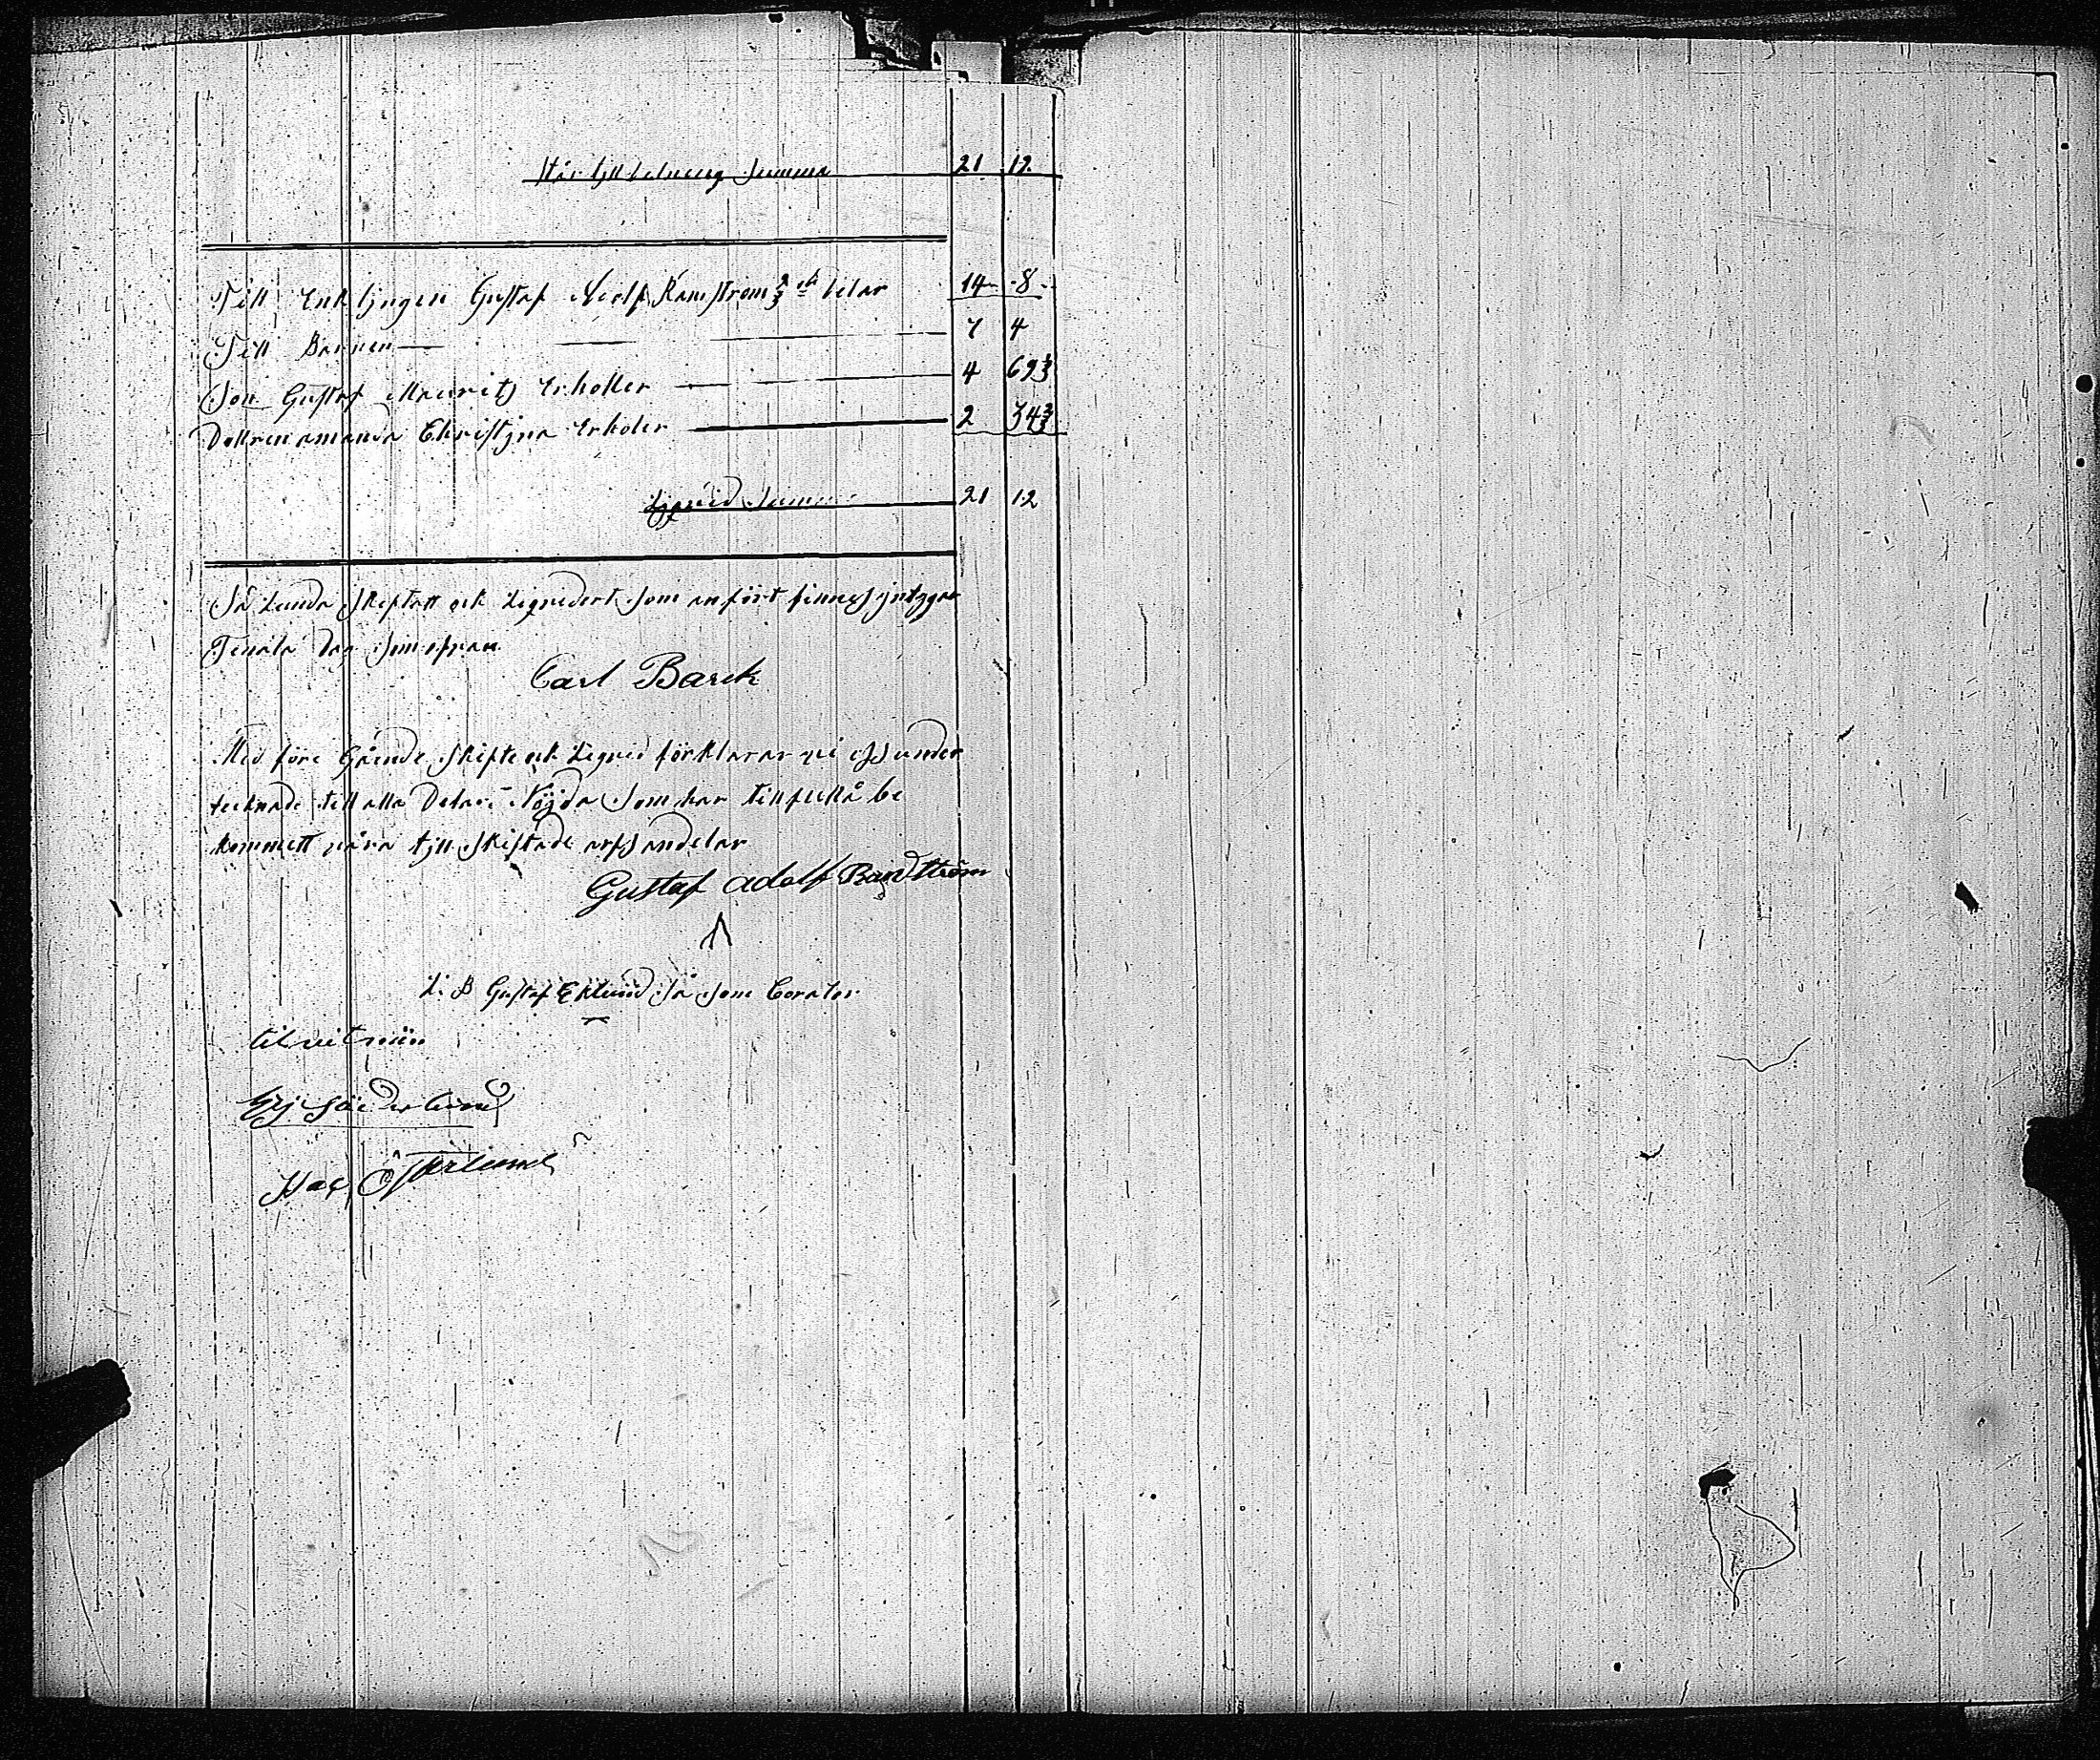 Står till delning Summa 21 12.
Till Enklingen Gustaf Adolf Ramström 2/3 delar 14 8
Till Barnen 7 4
Son Gustaf Mauritz Erholler 4 69 1/3
Dottren amanda Christina Erholer 2 34 2/3
Liqvid Summa 21 12
Så Lunda Skiftatt ock Liqvidert som anfört finnes jntygar
Tenala dag som ofvan
Carl Barck
Med före Gående Skifte ock Liqvid förklarar vi oss under
tecknade till alla Delar Nöjda som har till fullå be
kommett våra till Skiftade arfs andelar
Gustaf adolf Ramström
L. B Gustaf Eklund Så som Corator
til vitmän
Söderlund
Österlund